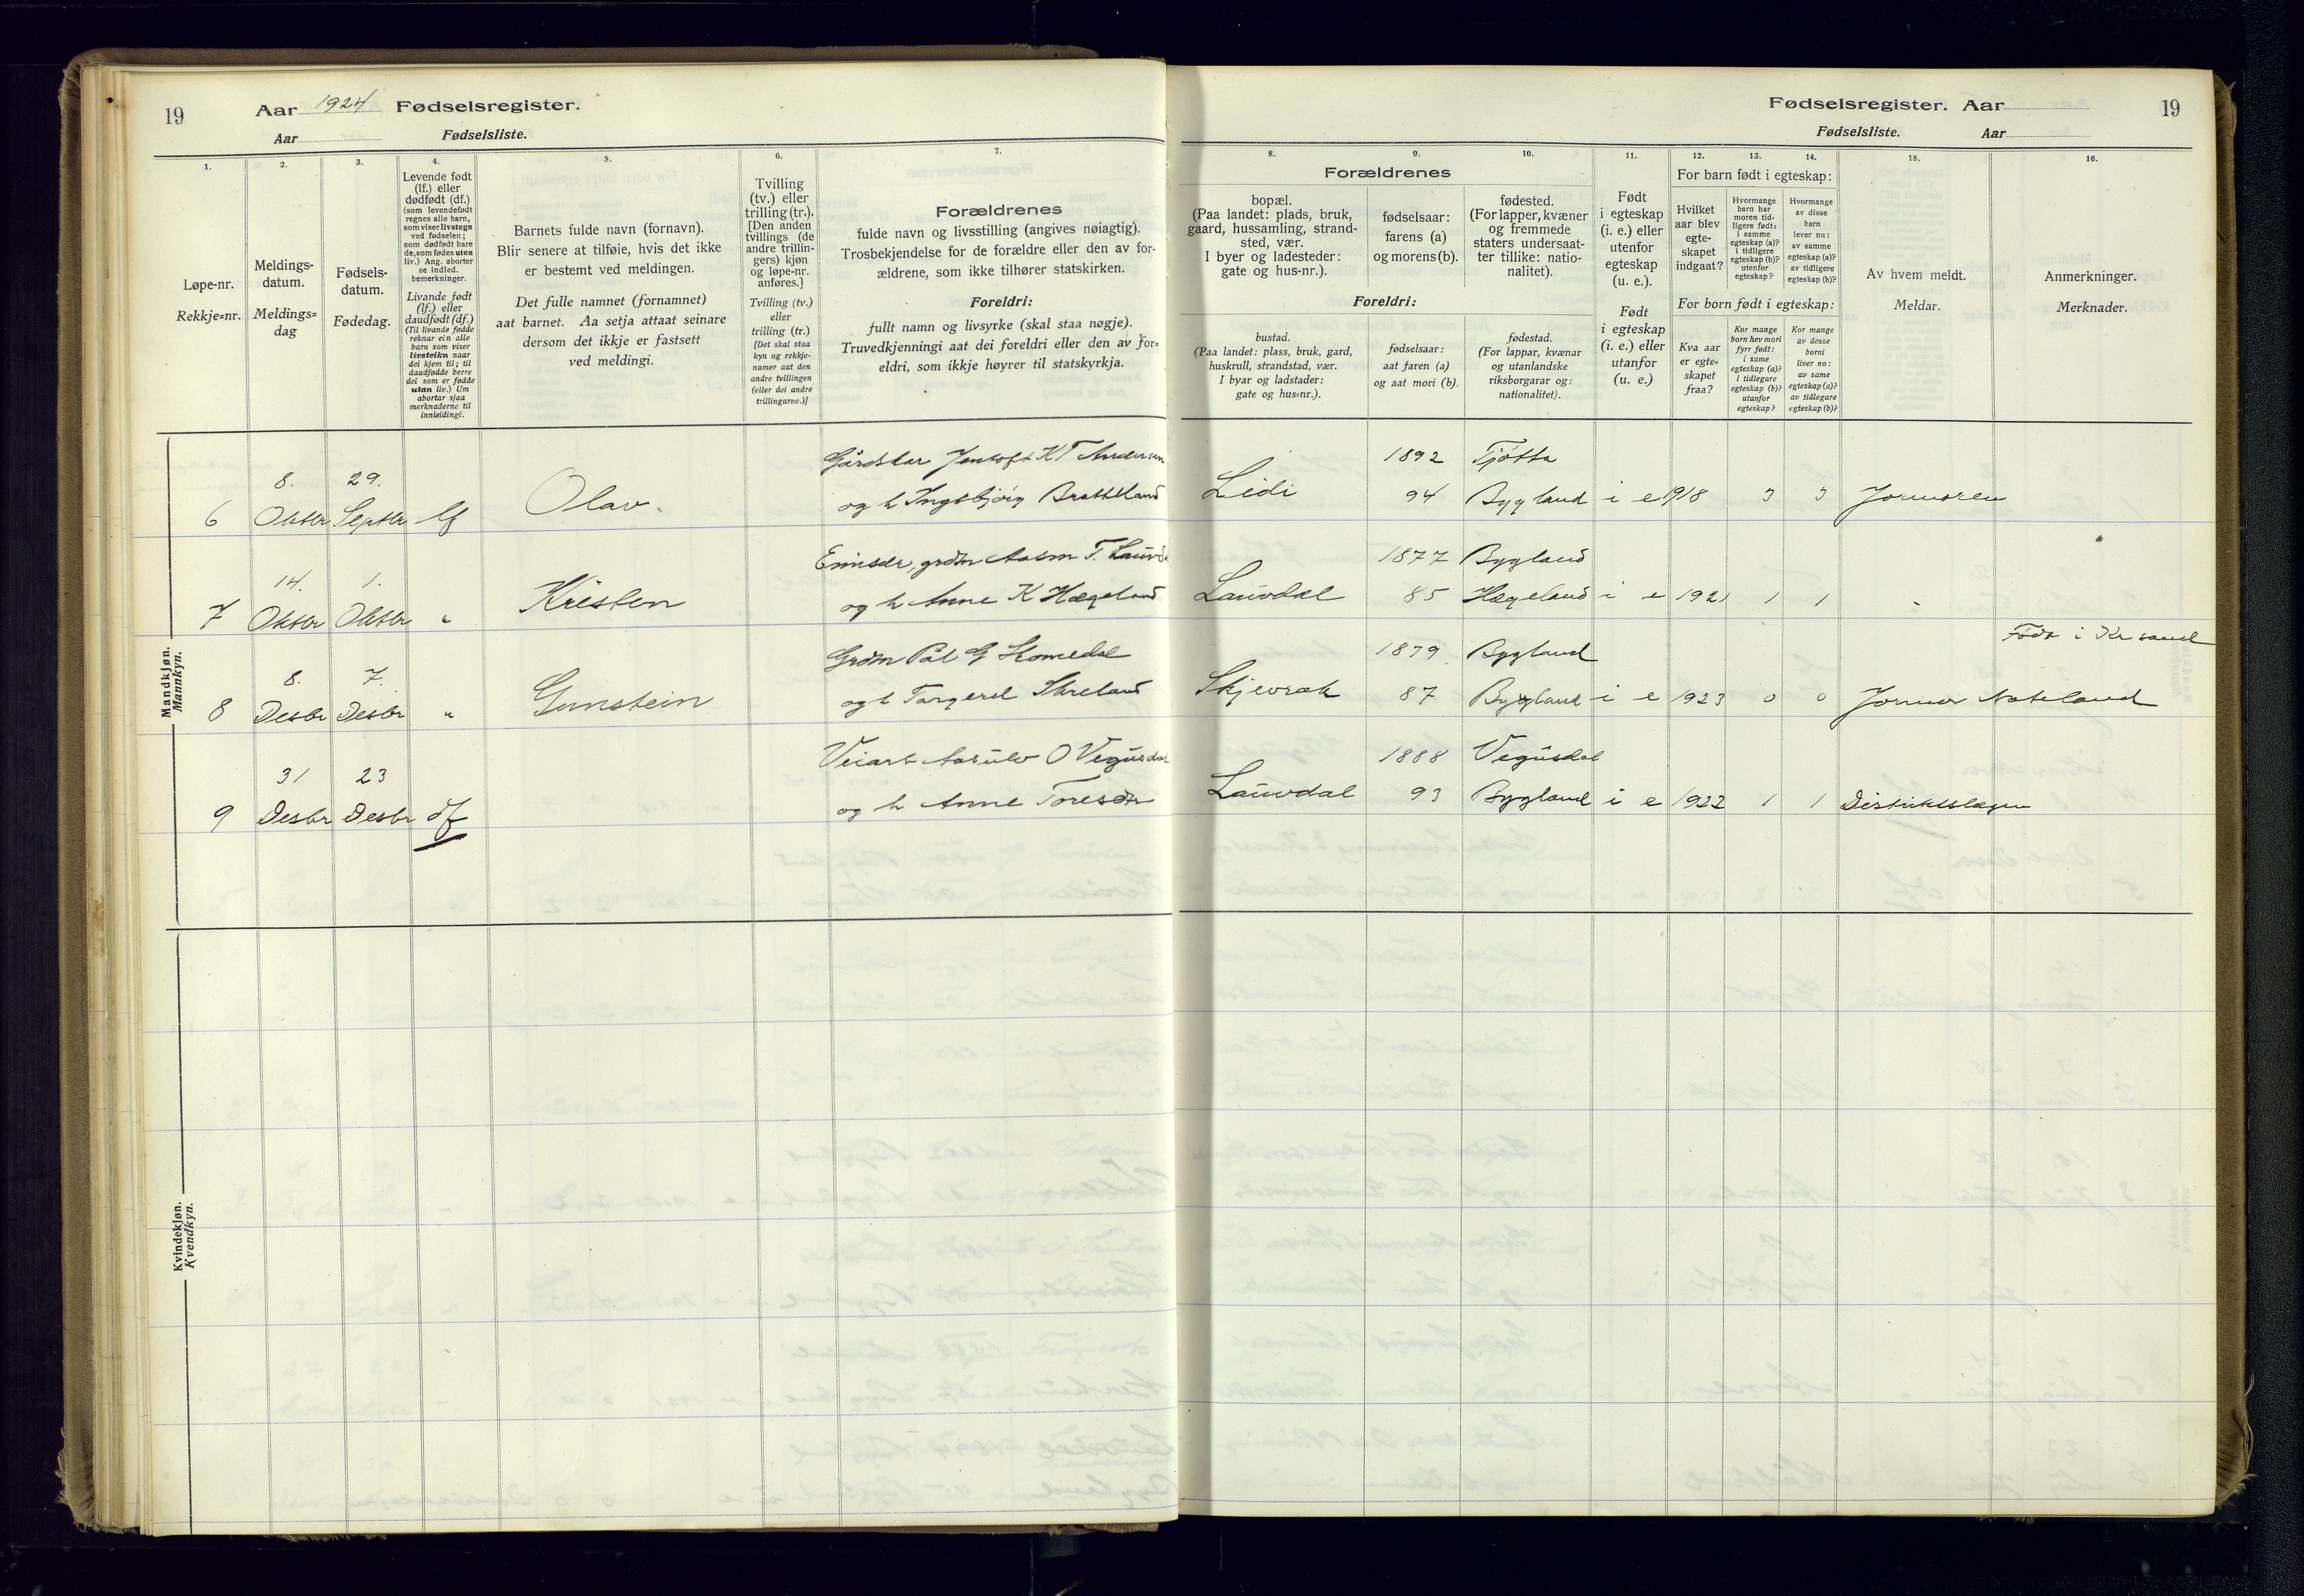 19
Aar 1924 Fødselsregister.
Aar Fødselsliste.
1.
2.
3.
4.
5.
6.
7.
Løpe-nr.
Rekkje=nr.
Meldings-
datum.
Meldings=
dag
Fødsels-
datum.
Fødedag.
Levende født
(lf.) eller
dødfødt (df.)
(som levendefødt
regnes alle barn,
som viser livstegn
ved fødselen;
som dødfødt bare
de, som fødes uten
liv.) Ang. aborter
se indled.
bemerkninger.
Livande født
(lf.) eller
daudfødt (df.)
(Til livande fødde
reknar ein alle
barn som viser
livsteikn naar
dei kjem til; til
daudfødde berre
dei som er fødde
utan liv.) Um
abortar sjaa
merknaderne til
innleidingi.
Barnets fulde navn (fornavn).
Blir senere at tilføie, hvis det ikke
er bestemt ved meldingen.
Det fulle namnet (fornamnet)
aat barnet. Aa setja attaat seinare
dersom det ikkje er fastsett
ved meldingi.
Tvilling
(tv.) eller
trilling (tr.).
[Den anden
tvillings (de
andre trillin-
gers) kjøn
og løpe-nr.
anføres.]
Tvilling (tv.)
eller
trilling (tr.)
[Det skal staa
kyn og rekkje-
numer aat den
andre tvillingen
(eller dei andre
trillingarne.)]
Forældrenes
fulde navn og livsstilling (angives nøiagtig).
Trosbekjendelse for de forældre eller den av for-
ældrene, som ikke tilhører statskirken.
Foreldri:
fullt namn og livsyrke (skal staa nøgje).
Truvedkjenningi aat dei foreldri eller den av for=
eldri, som ikkje høyrer til statskyrkja.
Fødselsregister. Aar
19
Fødselsliste. Aar
8.
9.
10.
11.
12.
13.
14.
15.
16.
Forældrenes
bopæl.
(Paa landet: plads, bruk,
gaard, hussamling, strand-
sted, vær.
I byer og ladesteder:
gate og hus-nr.).
fødselsaar:
farens (a)
og morens (b).
fødested.
(For lapper, kvæner
og fremmede
staters undersaat-
ter tillike: natio-
nalitet).
Foreldri:
bustad.
(Paa landet: plass, bruk, gard,
huskrull, strandstad, vær.
I byar og ladstader:
gate og hus=nr.).
fødselsaar:
aat faren (a)
og aat mori (b).
fødestad.
(For lappar, kvænar
og utanlandske
riksborgarar og:
nationalitet).
Født
i egteskap
(i. e.) eller
utenfor
egteskap
(u. e.).
Født
i egteskap
(i. e.) eller
utanfor
(u. e.)
For barn født i egteskap:
Hvilket
aar blev
egte-
skapet
indgaat?
Hvormange
barn har
moren tid-
ligere født:
i samme
egteskap (a)?
i tidligere
egteskap (b)?
utenfor
egteskap?
Hvormange
av disse
barn
lever nu:
av samme
egteskap (a)?
av tidligere
egteskap (b)?
For born født i egteskap:
Kva aar
er egte=
skapet
fraa?
Kor mange
born hev mori
fyrr født:
i same
egteskap (a)?
i tidlegare
egteskap (b)?
utanfor
egteskap?
Kor mange
av desse
borni
liver no:
av same
egteskap (a)?
av tidlegare
egteskap (b)?
Av hvem meldt.
Meldar.
Anmerkninger.
Merknader.
Mandkjøn.
Mannkyn.
Gårdbkar Jentoft K T Andersen 1892 Tjøtta
8. 29.
6 Oktbr Septbr lf Olav. og h Ingebjörg Bratteland Lidi 94 Bygland i e 1918 3 3 Jormoren
grdm Aasm T. Lauvdal 1877 Bygland
14. 1.
7 Oktbr Oktbr " Kristen og h Anne K Hægeland Lauvdal 85 Hægeland i e 1921 1 1 "
Født i Kr sand
Grdm Pål G Homedal 1879 Bygland
8. 7.
8 Desbr Desbr " Gunstein og h Torgerd Skreland Skjevrak 87 Bygland i e 1923 0 0 Jormor Nateland
Veiarb Aasulv O Vegusdal 1888 Vegusdal
31 23
9 Desbr Desbr df og h Anne Toresdtr Lauvdal 93 Bygland i e 1922 1 1 Distriktslægen
Kvindekjøn.
Kvendkyn.